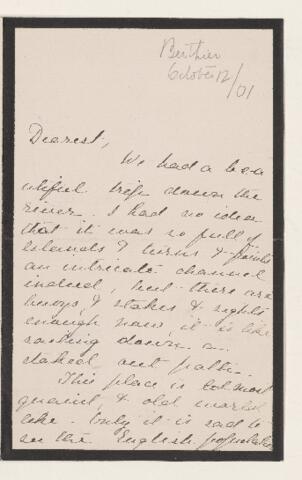 Berthier
October 12/01
Dearest,
We had a bea
utiful trip down the
river. I had no idea
that it was so full of
islands & turns & points
an intricate channel
indeed, but there are
buoys, & stakes & lights
enough now, it is like
sailing down a
staked out path.
This place is almost
quaint & old world
like. Only it is sad to
see the English population